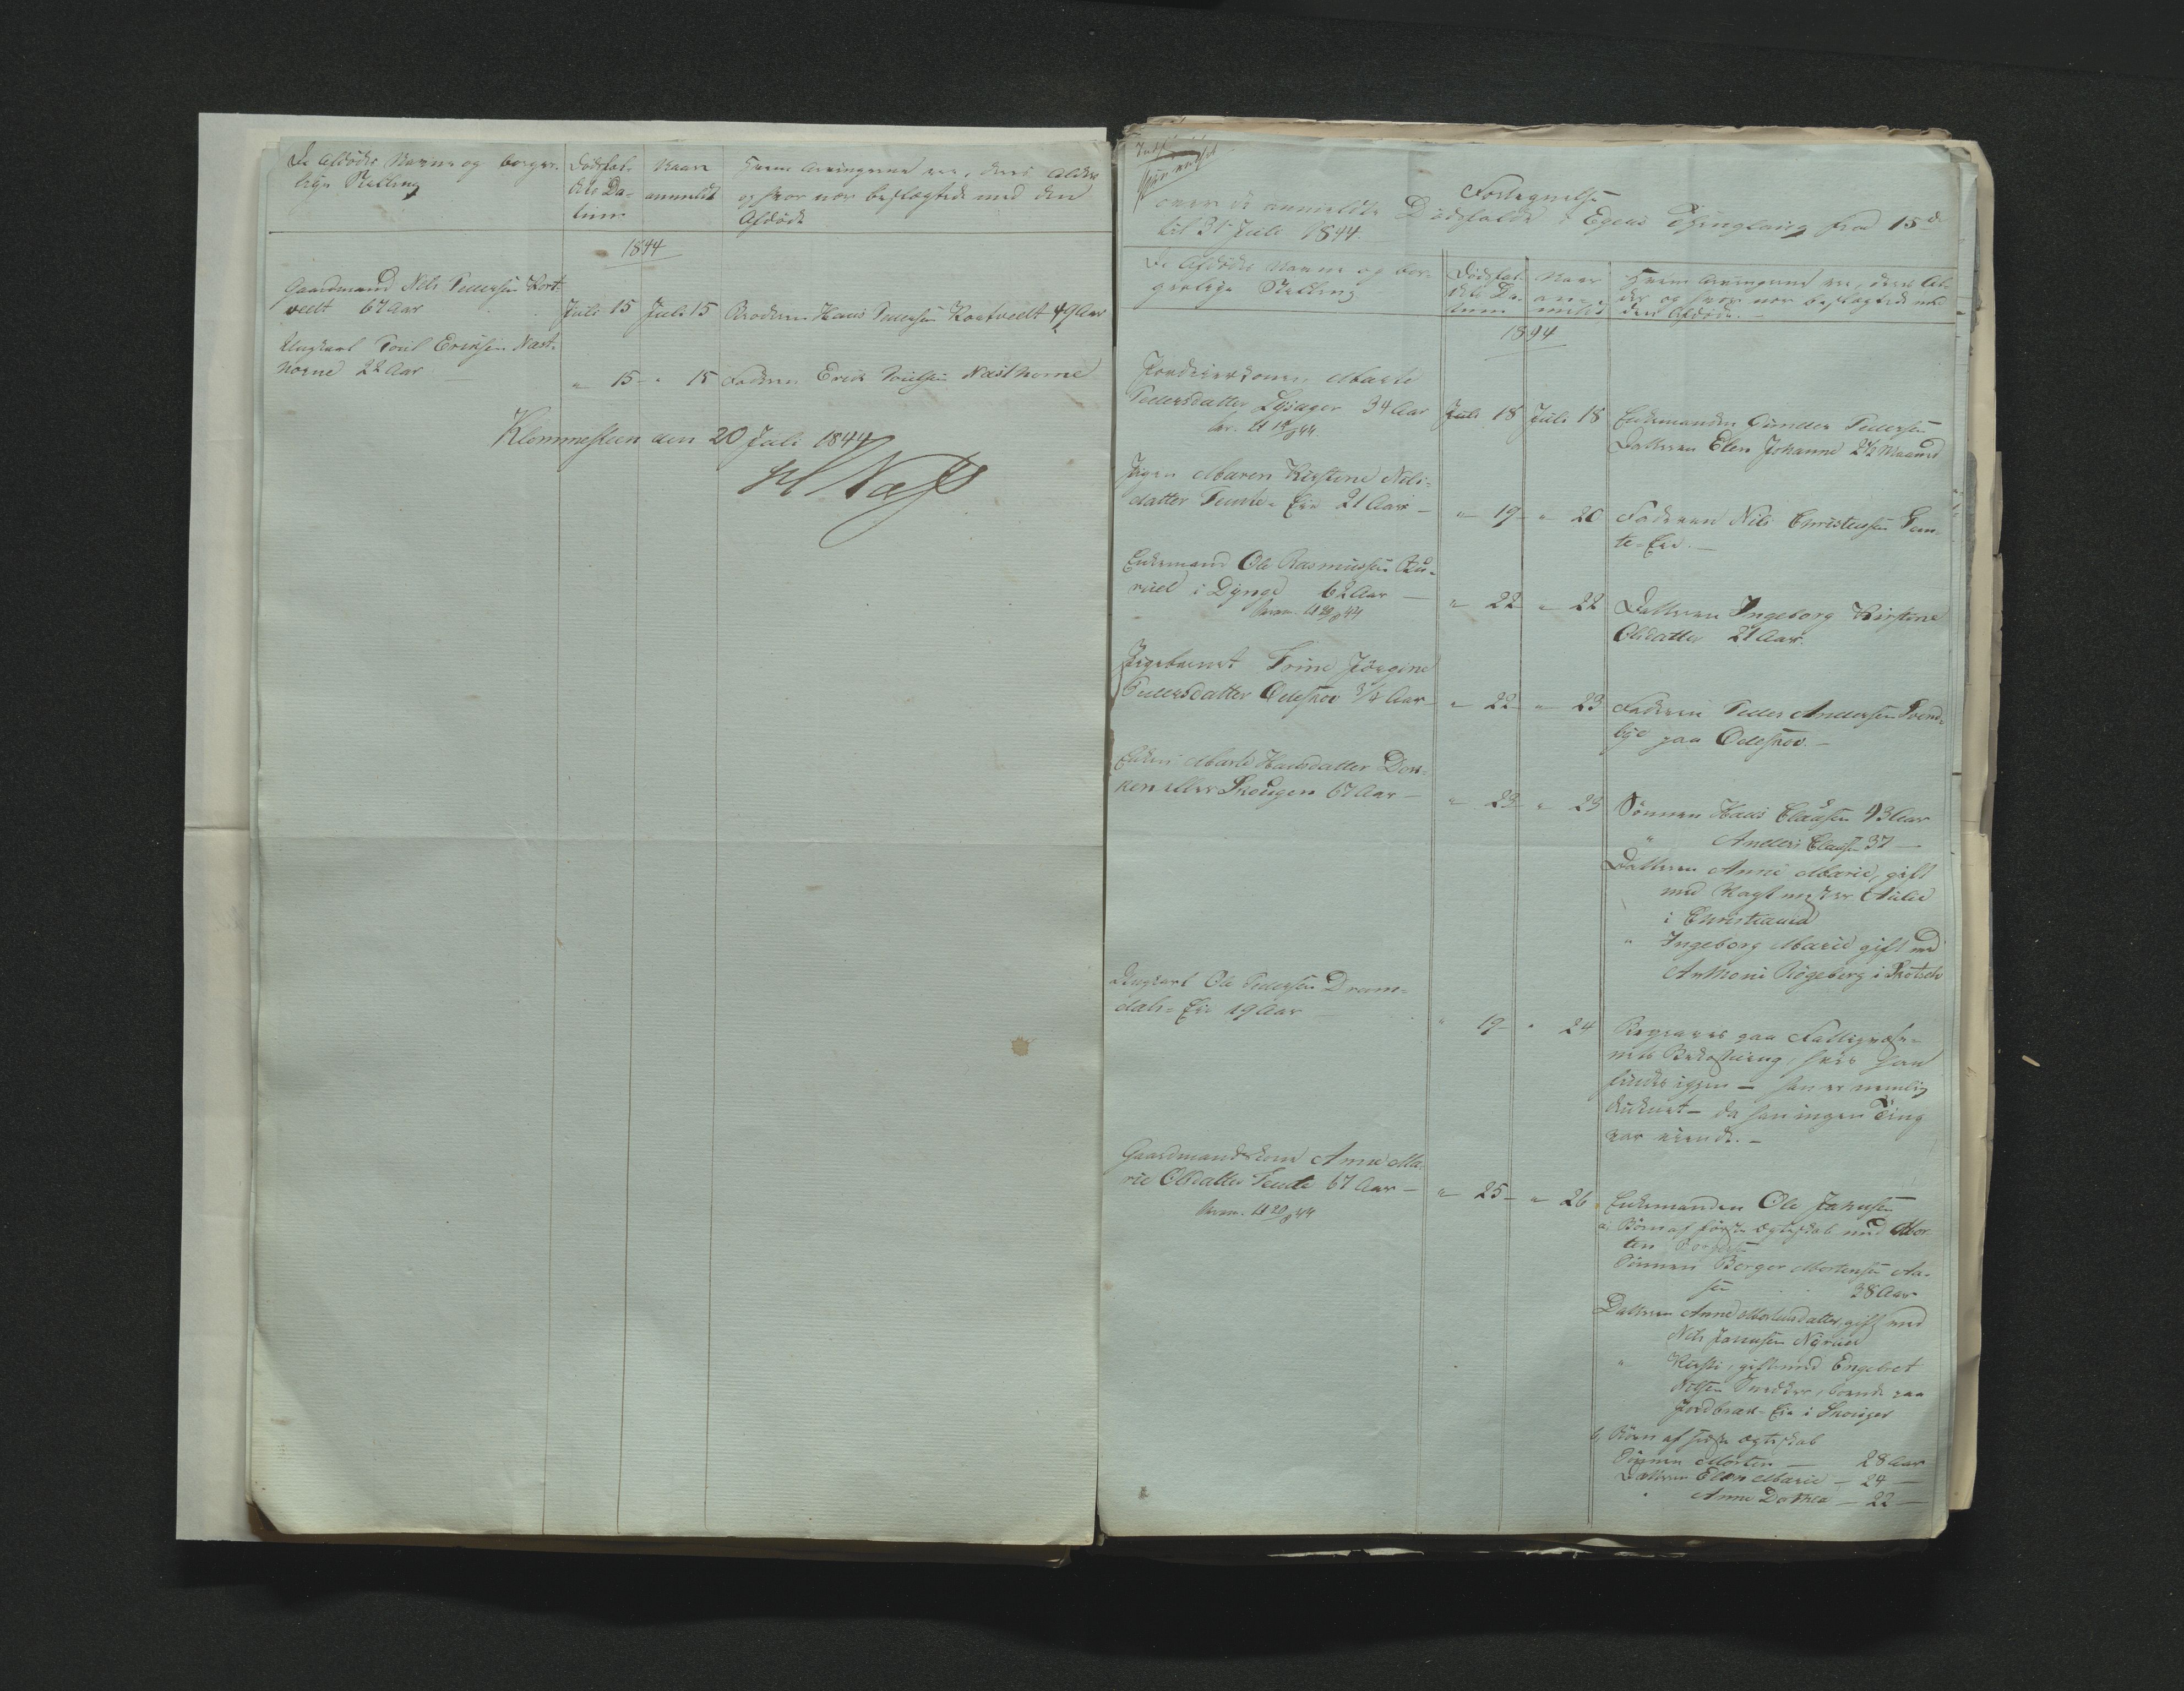 De Afdødes Navne og borger-
lige Stilling
Dødsfal-
dets Da-
tum
Naar
anmeldt
Hvem Arvingerne ere, deres Alder
og hvor nær beslægtede med den
Afdøde
1844
Gaardmand Nels Pedersen Kort-
vedt 67 Aar
Juli 15 Juli 15 Broderen Hans Pedersen Kortvedt 49 Aar
Ungkarl Poul Eriksen Næst-
horne 22 Aar —
" 15 - " 15 Faderen Erik Poulsen Næsthorne
Klommesteen den 20 Juli 1844
H Næss
Fortegnelse
over de anmeldte Dødsfalde i Egers Thinglaug fra 15de
til 31 Juli 1844
De Afdødes Navne og bor-
gerlige Stilling
Dødsfal-
dets Da-
tum
Naar
an-
meldt
Hvem Arvingerne ere, deres Al-
der og hvor nær beslægtede med
den Afdøde. —
1844
Marte
Pedersdatter Lysager 34 Aar Juli 18 Juli 18 Enkemanden Gunder Pedersen
Datteren Elen Johanne 2½ Maaned
Pigen Maren Kirstine Nels-
datter Temte-Eie 21 Aar — " 19 - " 20 Faderen Nils Christensen Tem-
te-Eie. —
Enkemand Ole Rasmussen
i Dynge 62 Aar — " 22 - " 22 Datteren Ingeborg Kirstine
Olsdatter 21 Aar.
Pigebarnet Trine Jørgine
Pedersdatter Ødeskov 3/4 Aar — " 22 - " 23 Faderen Peder Andersen Svend-
bye paa Ødeskov. —
Enken Marte Hansdatter Dor-
ken eller Skougen 67 Aar — " 23 - " 23 Sønnen Hans Clausen 43 Aar
" Anders Clausen 37 —
Datteren Anne Marie, gift
med Vagtmester Aulie
i Christiania
" Ingeborg Marie gift med
Anthoni Røgeberg i
Ungkarl Ole Pedersen Dram-
dals-Eie 19 Aar " 19 - " 24 Begraves paa Fattigvæse-
nets Bekostning, hvis han
findes igjen — han er nemlig
druknet — da han ingen Ting
var eiende. —
Gaardmandskone Anne Ma-
rie Olsdatter Temte 67 Aar — " 25 - " 26 Enkemanden Ole Jansen
a. Børn af første Ægteskab med Mor-
ten
Sønnen Borger Mortensen Aa-
sen 38 Aar
Datteren Anne Mortensdatter, gift med
Nels Jansen
" Kirsti, gift med Engebret
Nilsen Snedker, boende paa
Jordbræk-Eie i Skouger
b, Børn af sidste Ægteskab
Sønnen Morten — 28 Aar
Datteren Elen Marie — 24 —
" Anne Dorthea — 22 —